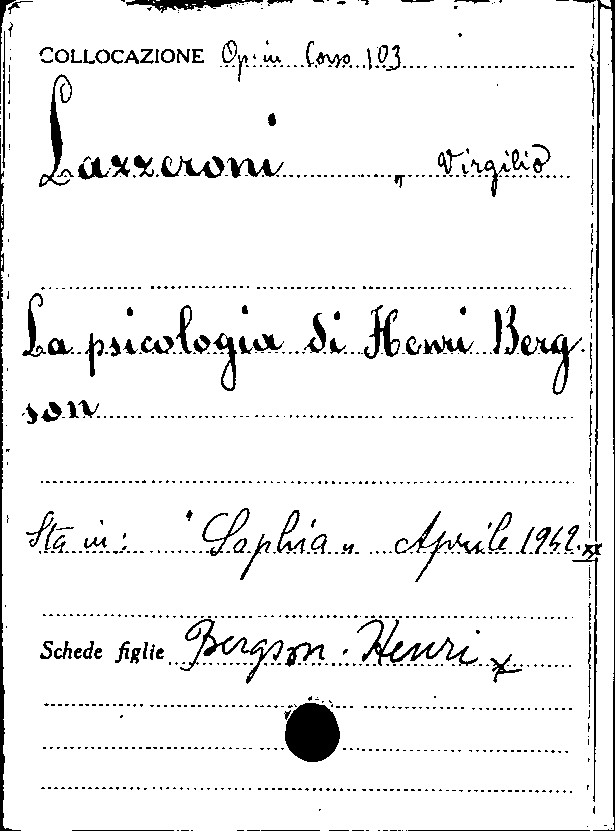 COLLOCAZIONE Op. in Corso 103
Lazzeroni , Virgilio
La psicologia di Henri Berg
son
Sta in: "Sophia" Aprile 1942.xx
Schede figlie Bergson. Henri x